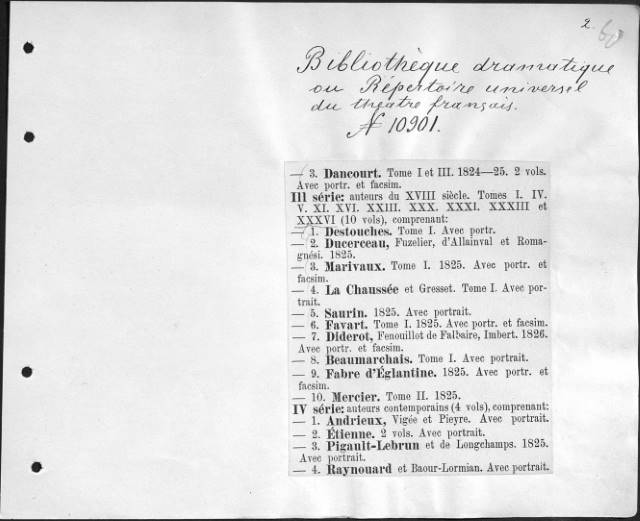 2.
Bibliothèque dramatique
ou Répertoire universel
du théatre français.
№ 10901.
— 3. Dancourt. Tome I et III. 1824—25. 2 vols.
Avec portr. et facsim.
III série: auteurs du XVIII siècle. Tomes I. IV.
V. XI. XVI. XXIII. XXX. XXXI. XXXIII et
XXXVI (10 vols), comprenant:
— 1. Destouches. Tome I. Avec portr.
— 2. Ducerceau, Fuzelier, d'Allainval et Roma-
gnési. 1825.
— 3. Marivaux. Tome I. 1825. Avec portr. et
facsim.
— 4. La Chaussée et Gresset. Tome I. Avec por-
trait.
— 5. Saurin. 1825. Avec portrait.
— 6. Favart. Tome I. 1825. Avec portr. et facsim.
— 7. Diderot, Fenouillot de Falbaire, Imbert. 1826.
Avec portr. et facsim.
— 8. Beaumarchais. Tome I. Avec portrait.
— 9. Fabre d'Églantine. 1825. Avec portr. et
facsim.
— 10. Mercier. Tome II. 1825.
IV série: auteurs contemporains (4 vols), comprenant:
— 1. Andrieux, Vigée et Pieyre. Avec portrait.
— 2. Étienne. 2 vols. Avec portrait.
— 3. Pigault-Lebrun et de Longchamps. 1825.
Avec portrait.
— 4. Raynouard et Baour-Lormian. Avec portrait.